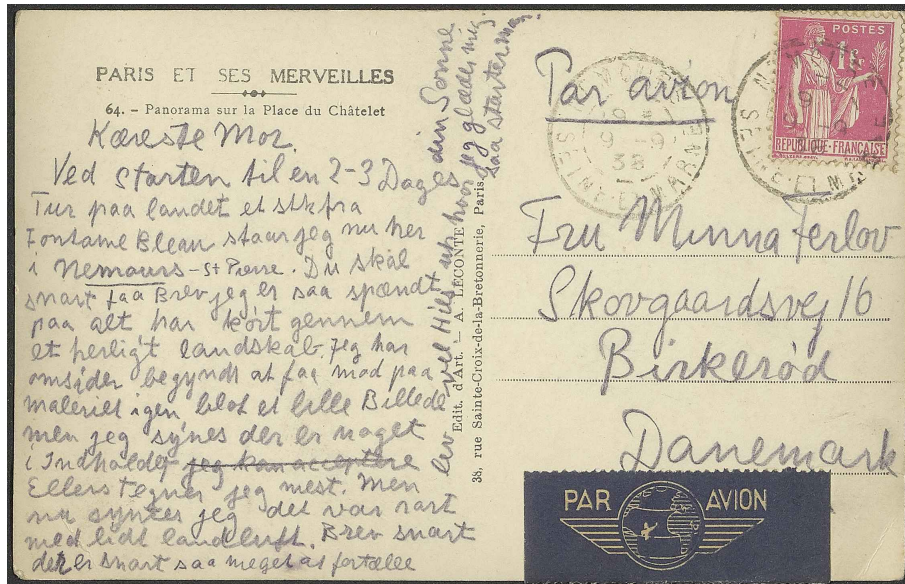 PARIS ET SES MERVEILLES
64. – Panorama sur la Place du Châtelet
Kæreste Mor.
Ved Starten til en 2-3 Dages
Tur paa landet et stk fra
Fontaine Bleau staar jeg nu her
i Nemours – St Pierre. Du skal
snart faa Brev jeg er saa spændt
paa alt har kørt gennem
et herligt landskab. Jeg har
omsider begyndt at faa mod paa
maleriet igen blot et lille Billede
men jeg synes der er noget
i Indholdet jeg kan acceptere
Ellers tegner jeg mest. Men
nu syntes jeg det var rart
med lidt landluft. Brev snart
der er snart saa meget at fortælle
lev vel Hils
hvor jeg glæder mig.
saa starter
din Sonne
Edit. d'Art. – A. LECONTE
38, rue Sainte-Croix-de-la-Bretonnerie, Paris
Par avion
POSTES
1f
REPUBLIQUE-FRANÇAISE
SEINE-ET-MARNE
9 -9
38
SEINE-ET-MARNE
Fru Minna Ferlov
Skovgaardsvej 16
Birkerød
Danemark
PAR AVION